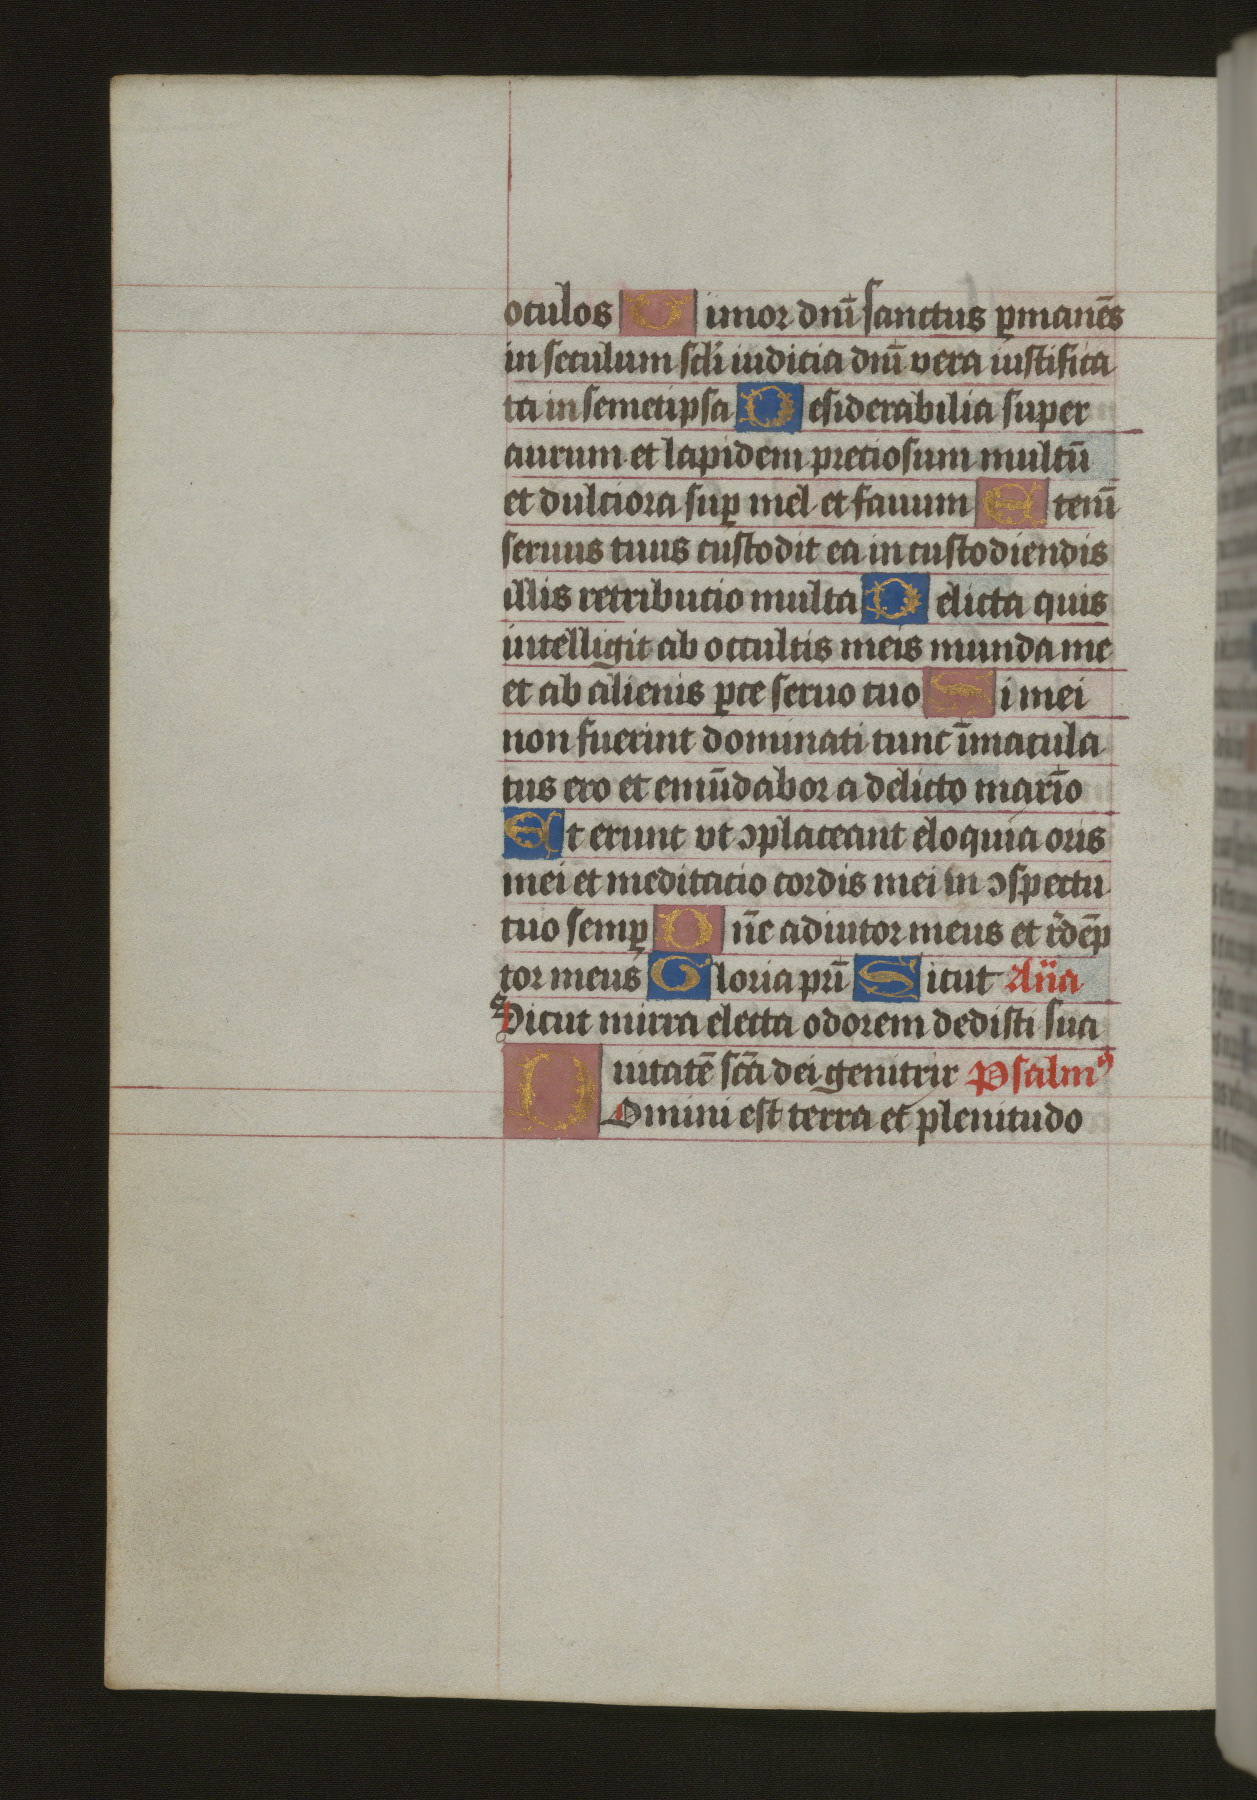 oculos Timor dnī sanctus ꝑmanēs
in seculum scli iudicia dnī vera iustifica
ta in semetipsa Desiderabilia super
aurum et lapidem preciosum multū
et dulciora suꝑ mel et fauum Etenī
seruus tuus custodit ea in custodiendis
illis retributio multa Delicta quis
intelligit ab occultis meis munda me
et ab alienis ꝑce seruo tuo Si mei
non fuerint dominati tunc īmacula
tus ero et emūdabor a delicto maxīo
Et erunt vt ɔplaceant eloquia oris
mei et meditacio cordis mei in ɔspectu
tuo semꝑ Dn̄e adiutor meus et rēdēp
tor meus Gloria pr̄i Sicut An̄a
Sicut mirra electa odorem dedisti sua
uitatē sc̄a dei genitrix Psalmꝰ
Domini est terra et plenitudo